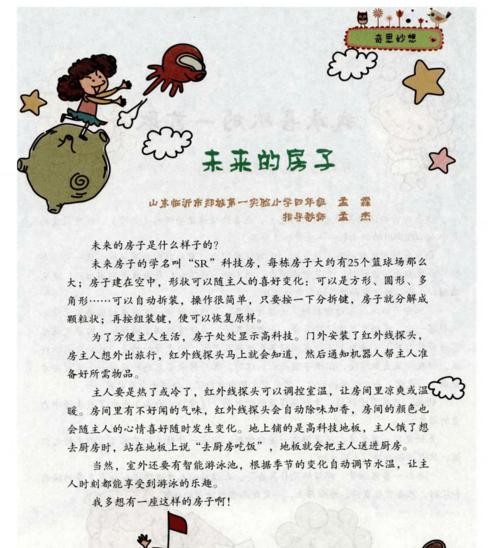 奇思妙想
未来的房子
山东临沂市郯城第一实验小学四年级 孟霖
指导教师 孟杰
未来的房子是什么样子的?
未来房子的学名叫“SR”科技房,每栋房子大约有25个篮球场那么
大;房子建在空中,形状可以随主人的喜好变化:可以是方形、圆形、多
角形……可以自动拆装,操作很简单,只要按一下分拆键,房子就分解成
颗粒状;再按组装键,便可以恢复原样。
为了方便主人生活,房子处处显示高科技。门外安装了红外线探头,
房主人想外出旅行,红外线探头马上就会知道,然后通知机器人帮主人准
备好所需物品。
主人要是热了或冷了,红外线探头可以调控室温,让房间里凉爽或温
暖。房间里有不好闻的气味,红外线探头会自动除味加香,房间的颜色也
会随主人的心情喜好随时发生变化。地上铺的是高科技地板,主人饿了想
去厨房时,站在地板上说“去厨房吃饭”,地板就会把主人送进厨房。
当然,室外还要有智能游泳池,根据季节的变化自动调节水温,让主
人时刻都能享受到游泳的乐趣。
我多想有一座这样的房子啊!